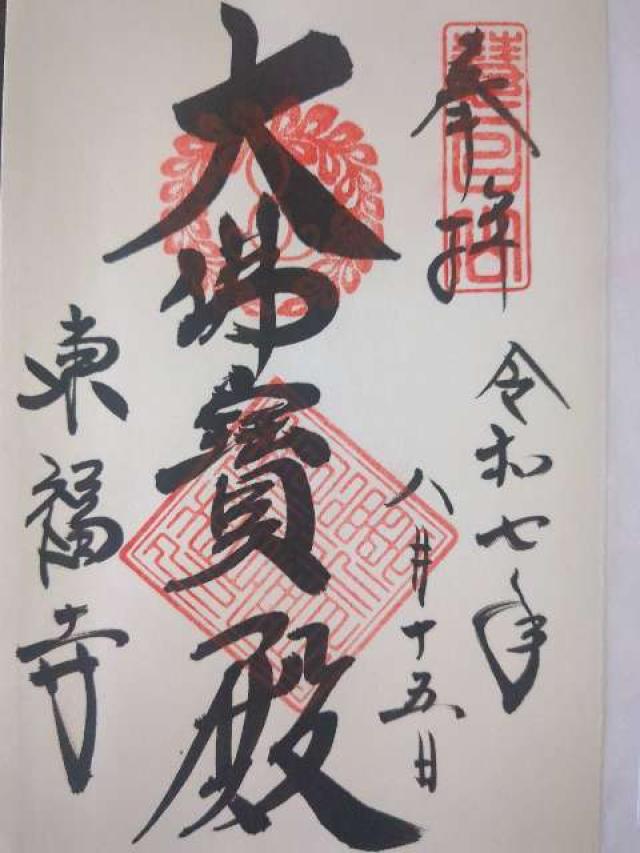 奉拝
令和七年
八月十五日
大佛寳殿
東福寺